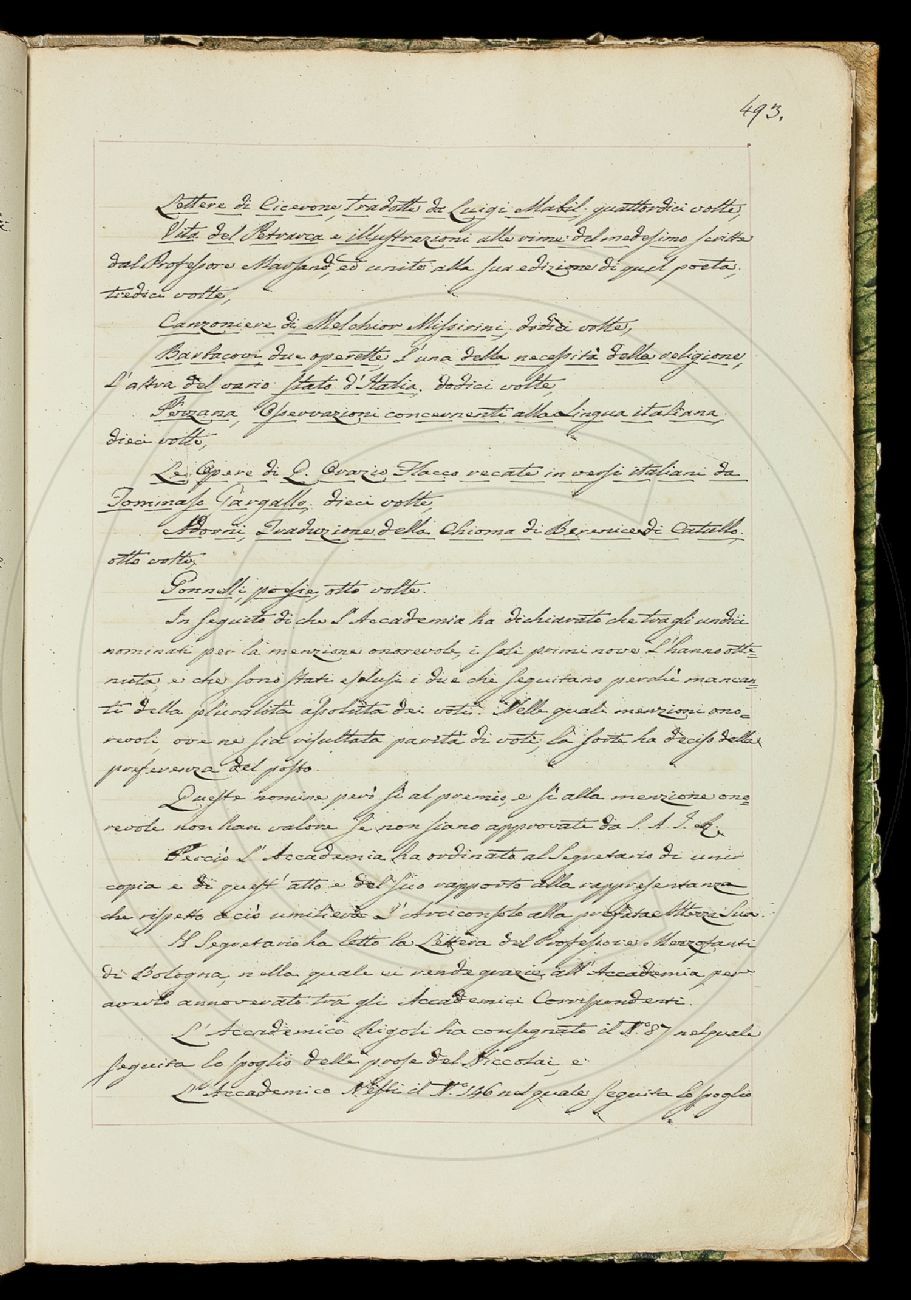 493.
Lettere di Cicerone, tradotte da Luigi Mabil quattordici volte,
Vita del Petrarca e illustrazioni alle rime del medesimo scritte
dal Professore Marsand, ed unite alla sua edizione di quel poeta,
tredici volte,
Canzoniere di Melchior Missirini, dodici volte,
Barbacovi, due operette, l'una della necessità della religione,
l'altra del vario stato d'Italia, dodici volte,
Perzana, Osservazioni concernenti alla Lingua italiana,
dieci volte,
Le Opere di Q. Orazio Flacco recate in versi italiani da
Tommaso Gargallo, dieci volte,
Adorni, Traduzione della Chioma di Berenice di Catullo,
otto volte,
Gonnelli, poesie, otto volte.
In seguito di che l'Accademia ha dichiarato che tra gli undici
nominati per la menzione onorevole, i soli primi nove l'hanno otte=
nuta, e che sono stati esclusi i due che seguitano perchè mancan=
ti della pluralità assoluta dei voti. Nelle quali menzioni ono=
revoli ove ne sia risultata parità di voti, la sorte ha deciso della
preferenza del posto.
Queste nomine però sì al premio, e sì alla menzione ono=
revole non han valore se non siano approvate da S. A. I. e R.
Perciò l'Accademia ha ordinato al Segretario di unir
copia e di quest'atto e del suo rapporto alla rappresentanza
che rispetto a ciò umilierà l'Arciconsolo alla prefata Altezza Sua.
Il Segretario ha letto la Lettera del Professore Mezzofanti
di Bologna, nella quale ei rende grazie all'Accademia per
averlo annoverato tra gli Accademici Corrispondenti.
L'Accademico Rigoli ha consegnato il N.° 87 nel quale
seguita lo spoglio delle prose del Niccolai e
L'Accademico Nesti il N.° 146 nel quale seguita lo spoglio